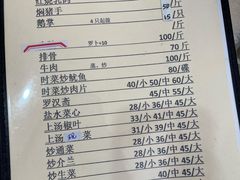 红烧乳鸽
焖猪手 50/斤
鹅掌 4只起做
萝卜+10 100/斤
排骨 70/斤
牛肉 100/斤
时菜炒鱿鱼 80/碟
时菜炒肉片 40/小 50/中 60/大
罗汉斋 45/中 55/大
盐水菜心 28/小 36/中 45/大
上汤椒叶 33/小 41/中 49/大
上汤 菜 31/小 39/中 47/大
炒通菜 28/小 36/中 45/大
炒介兰 28/小 36/中 45/大
炒生菜 28/小 36/中 45/大